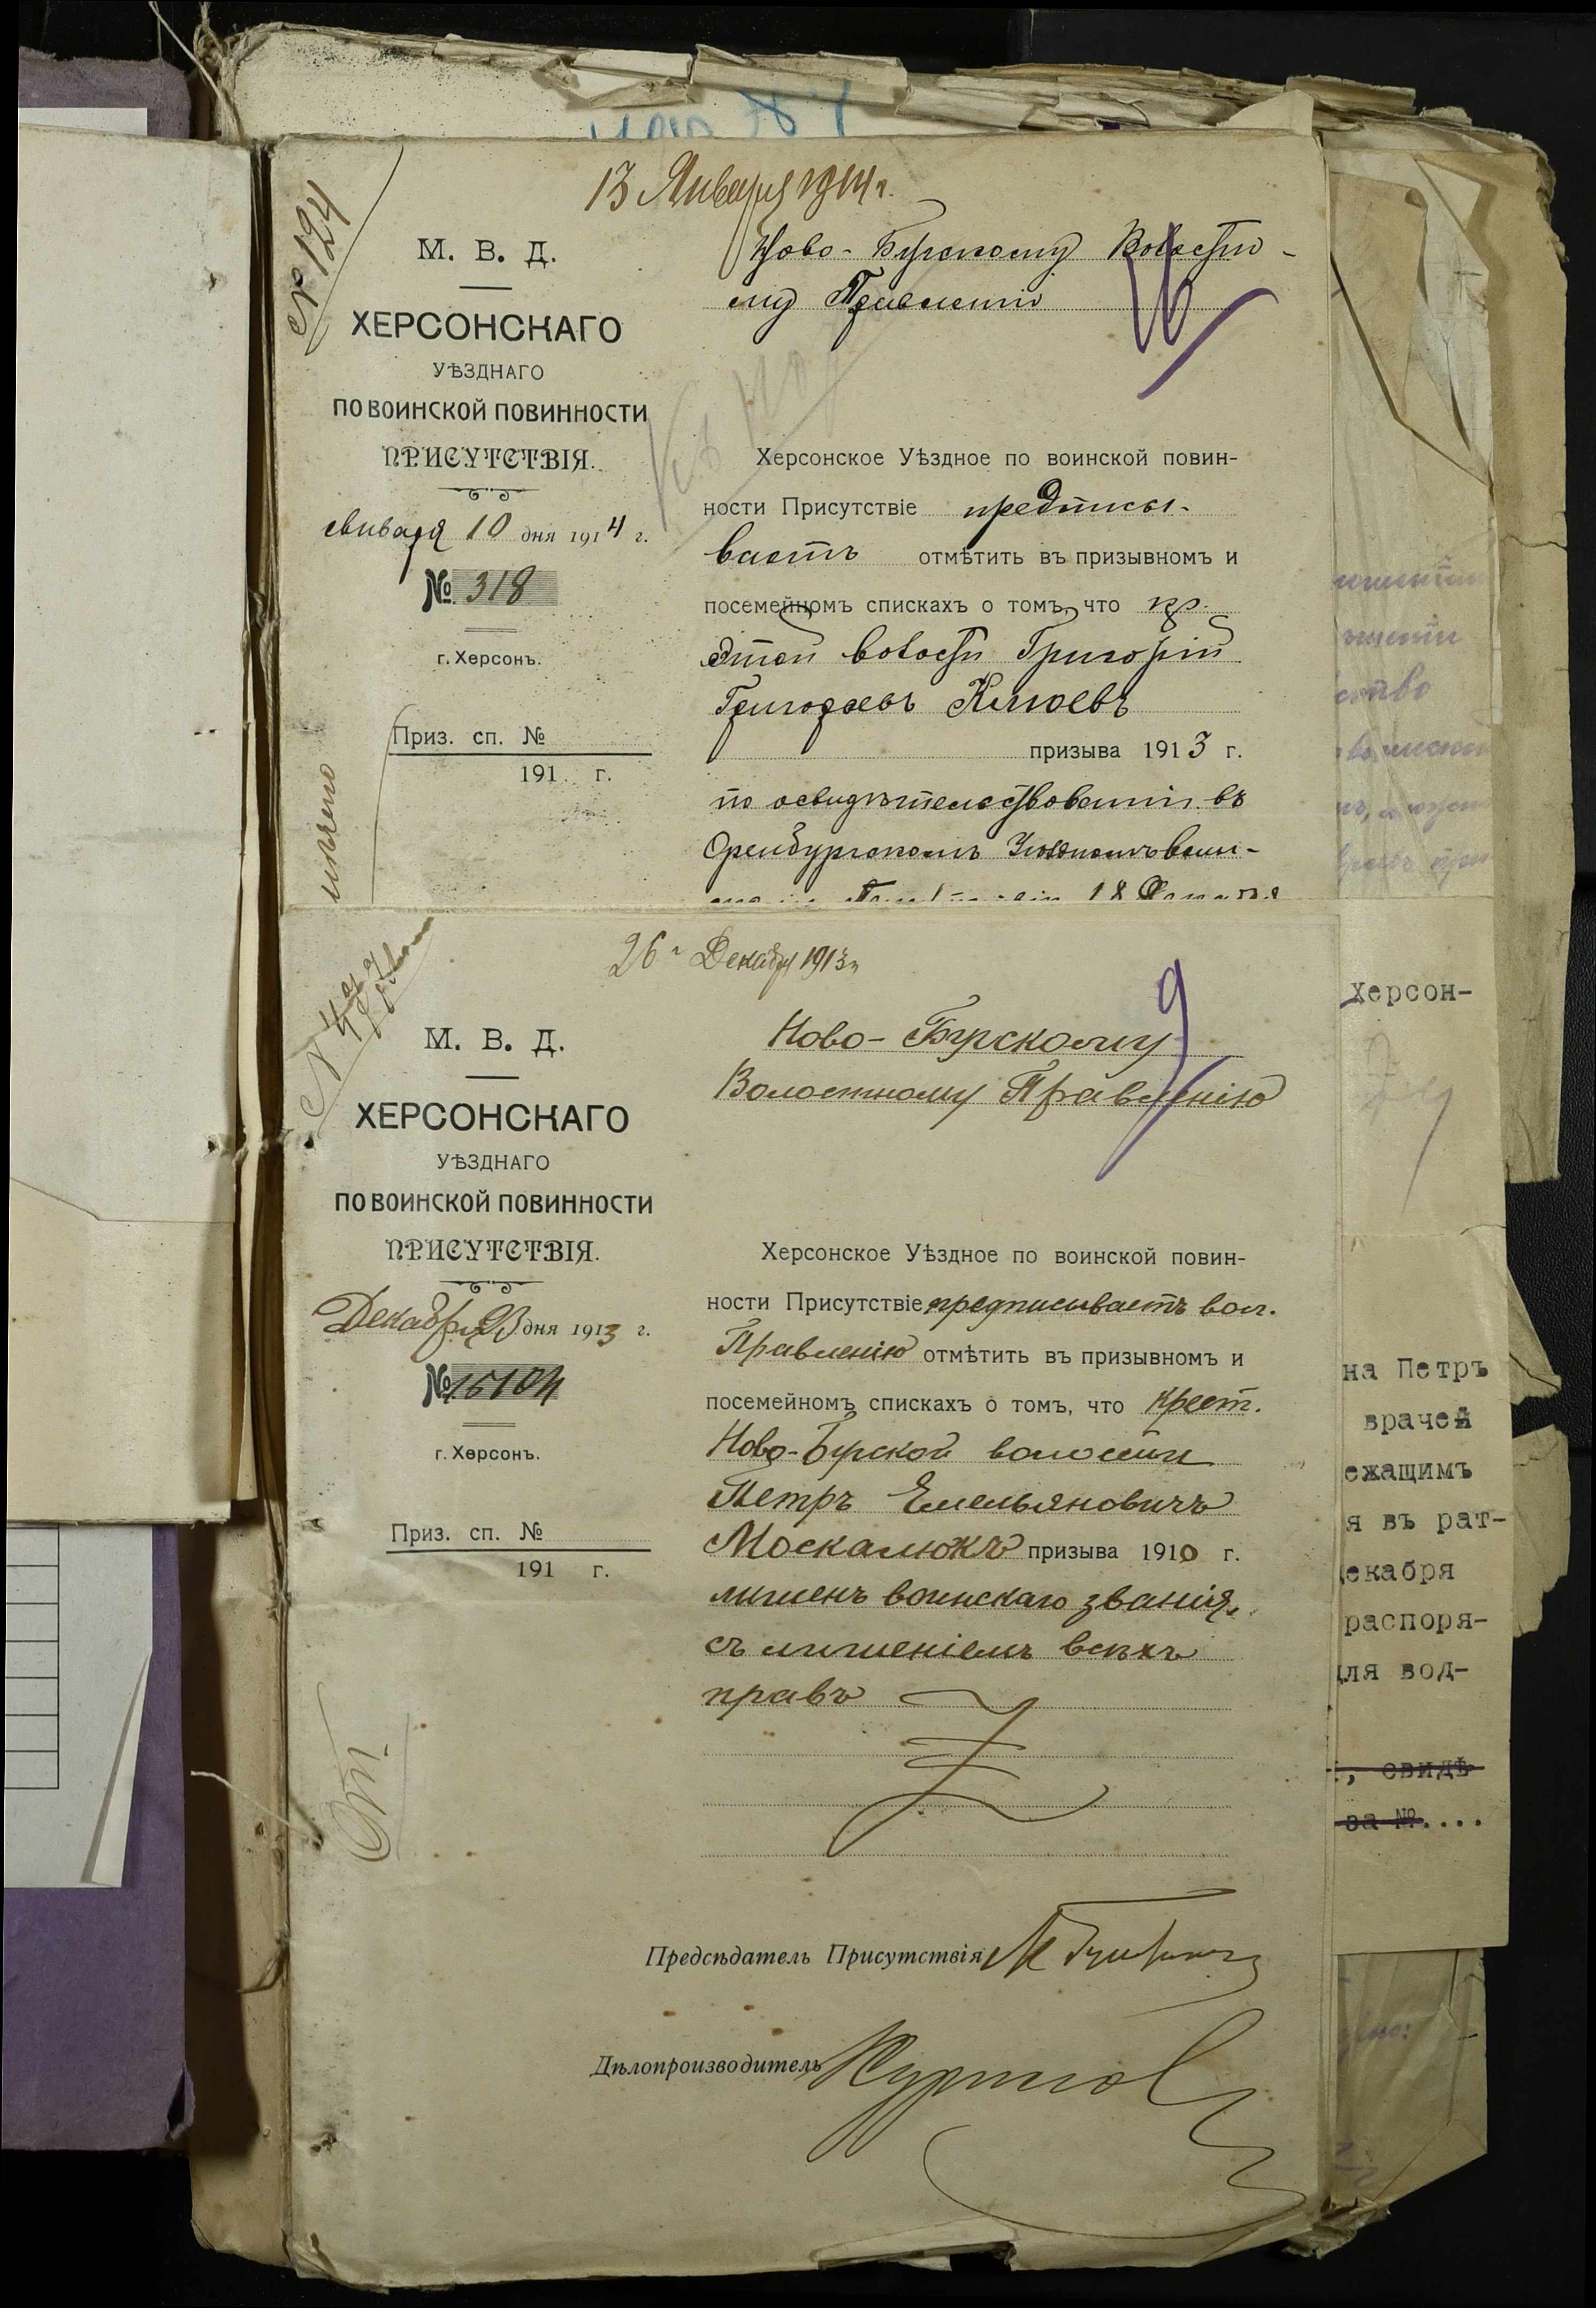 13 Января 1914 г.
№ 124
М. В. Д.
ХЕРСОНСКАГО
УѢЗДНАГО
ПО ВОИНСКОЙ ПОВИННОСТИ
ПРИСУТСТВІЯ.
Января 10 дня 1914 г.
№ 318
г. Херсонъ.
Приз. сп. №
191 г.
Ново-Бугскому Волостно-
му Правленію
16
Херсонское Уѣздное по воинской повин-
ности Присутствіе предписы-
ваетъ отмѣтить въ призывномъ и
посемейномъ спискахъ о томъ, что кр.
этой волости Григорій
Григорьевъ Клюевъ
призыва 1913 г.
по освидѣтельствованіи въ
Оренбургскомъ Уѣздномъ воин-
18
26 Декабря 1913 г.
М. В. Д.
ХЕРСОНСКАГО
УѢЗДНАГО
ПО ВОИНСКОЙ ПОВИННОСТИ
ПРИСУТСТВІЯ.
Декабря 23 дня 1913 г.
№ 15104
г. Херсонъ.
Приз. сп. №
191 г.
От.
Ново-Бугскому
Волостному Правленію
9
Херсонское Уѣздное по воинской повин-
ности Присутствіе предписываетъ вол.
Правленію отмѣтить въ призывномъ и
посемейномъ спискахъ о томъ, что крест.
Ново-Бугской волости
Петръ Емельяновичъ
Москалюкъ призыва 1910 г.
лишенъ воинскаго званія,
съ лишеніемъ всѣхъ
правъ
Предсѣдатель Присутствія
Дѣлопроизводитель
Херсон-
на Петръ
врачей
ежащимъ
я въ рат-
декабря
распоря-
для вод-
, свидѣ
за №....